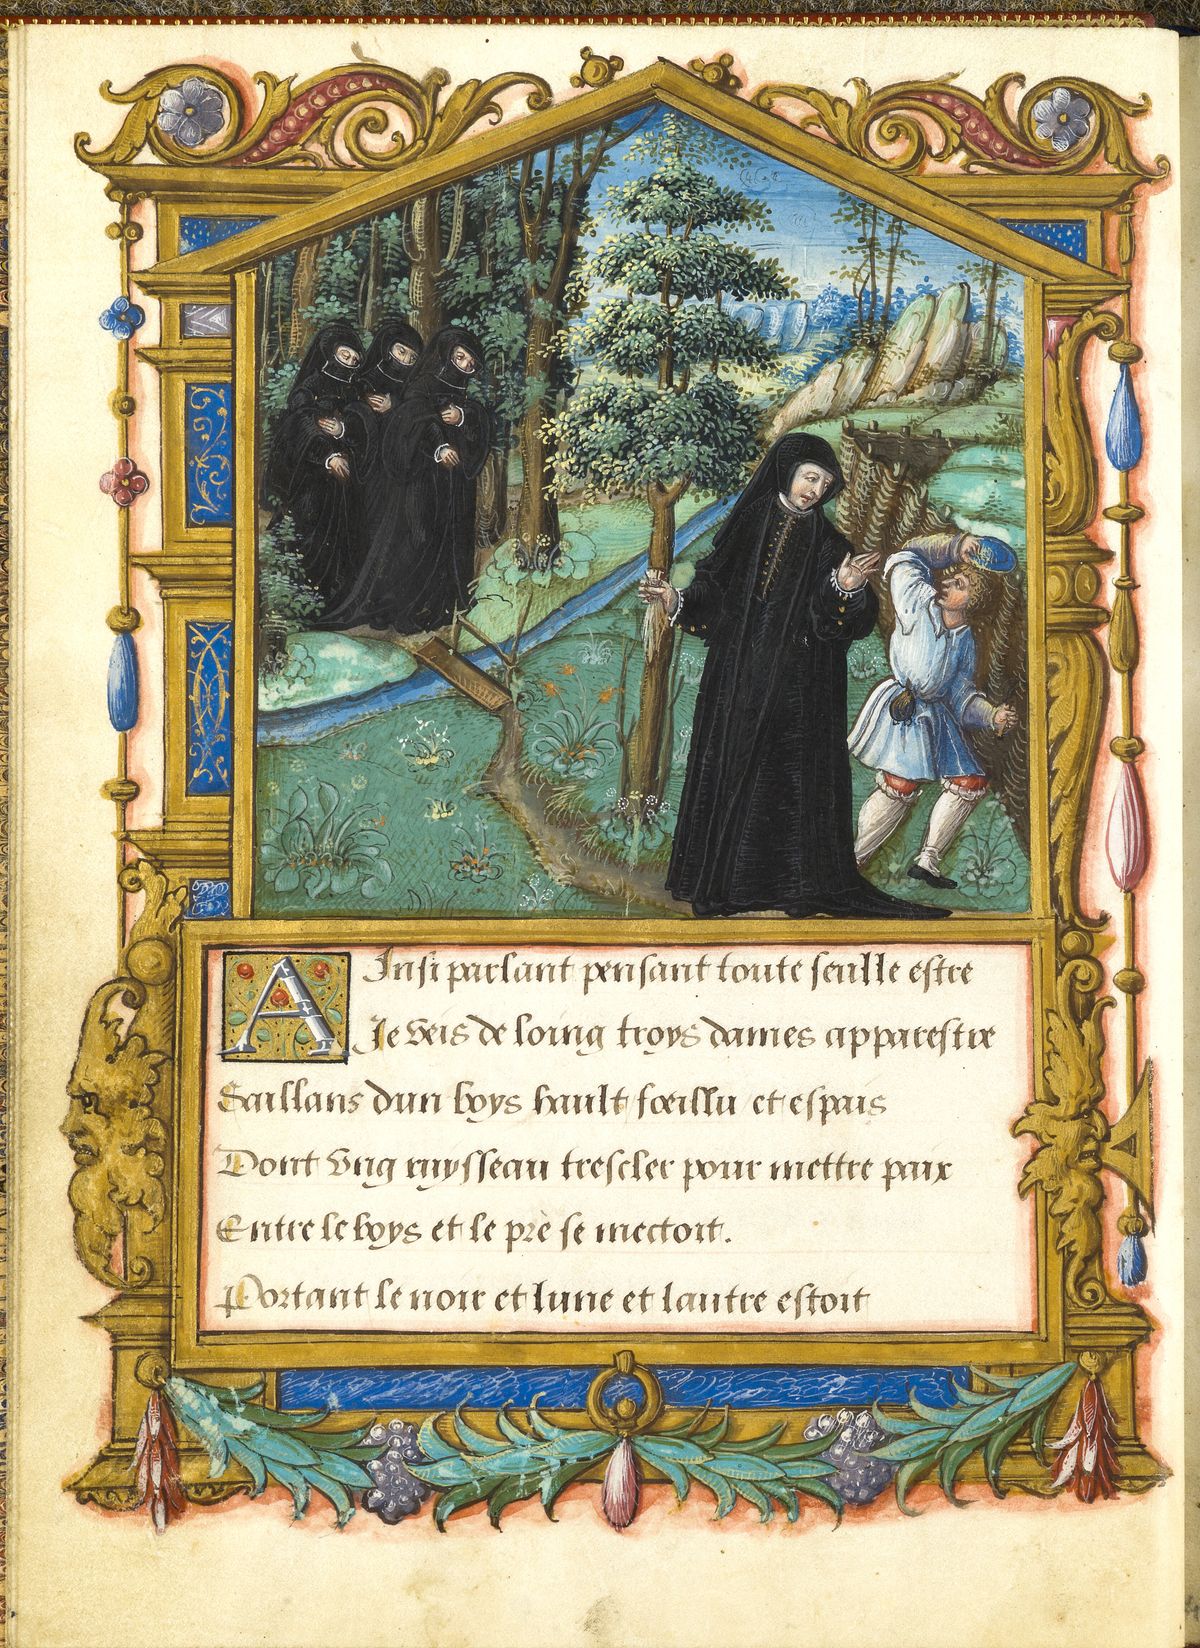 Ainsi parlant pensant toute seulle estre
Je veis de loing troys dames apparestre
Saillans dun boys hault foeillu et espais
Dont ung ruysseau trescler pour mettre paix
Entre le boys et le pré se mectoit.
Portant le noir et lune et lautre estoit